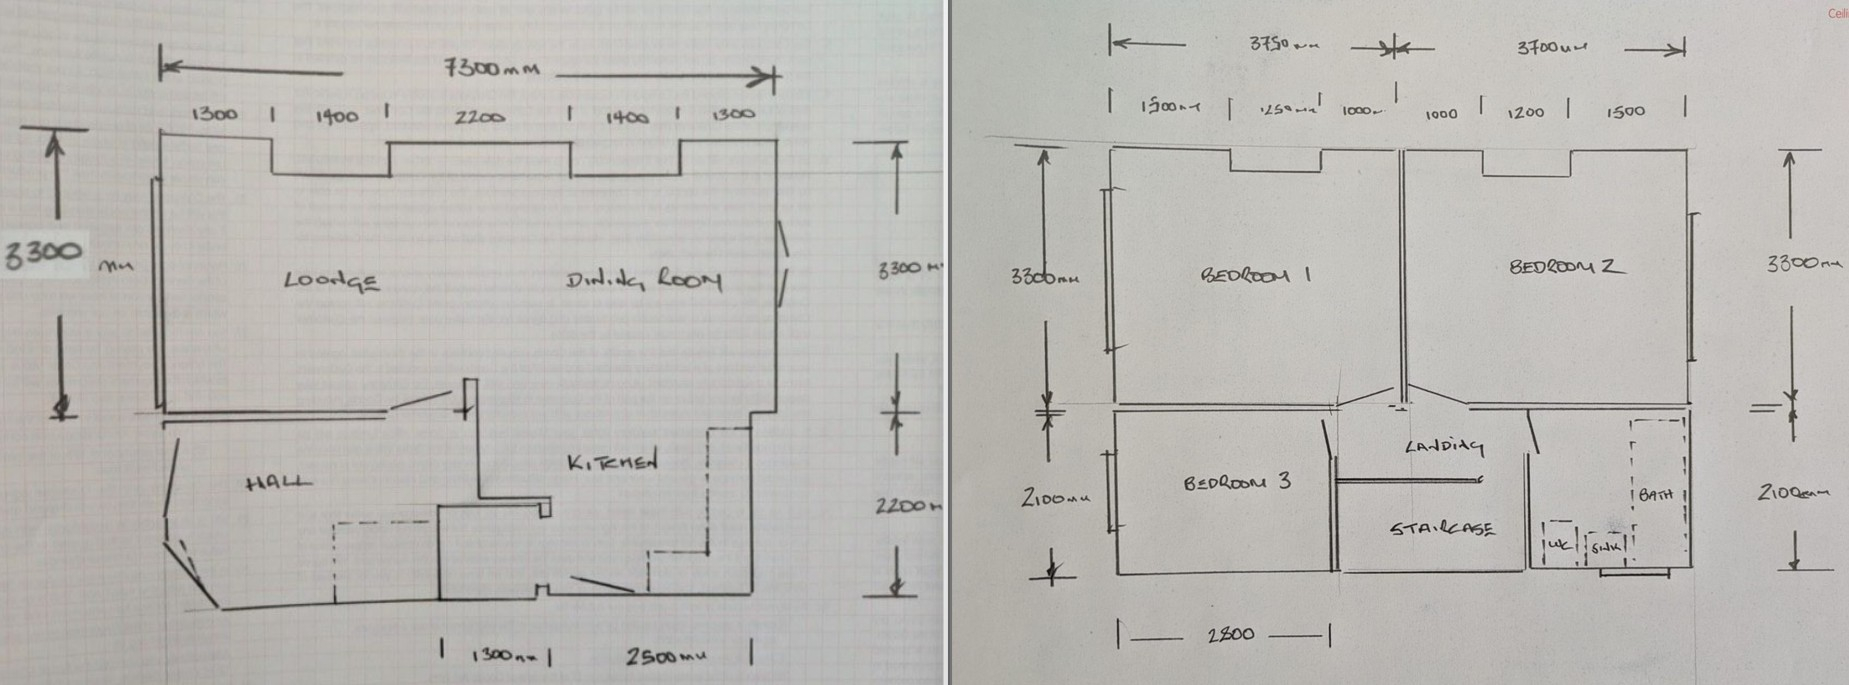 7300mm
1300 1400 2200 1400 1300
3300 mm
3300
LOUNGE
DINING ROOM
KITCHEN
HALL
2200
1300mm
2500mm
Ceili
3750mm
3700mm
1500mm 1250mm 1000m 1000 1200 1500
3300mm
BEDROOM 1
BEDROOM 2
3300mm
LANDING
2100mm
BEDROOM 3
BATH
2100mm
STAIRCASE
SINK
2800